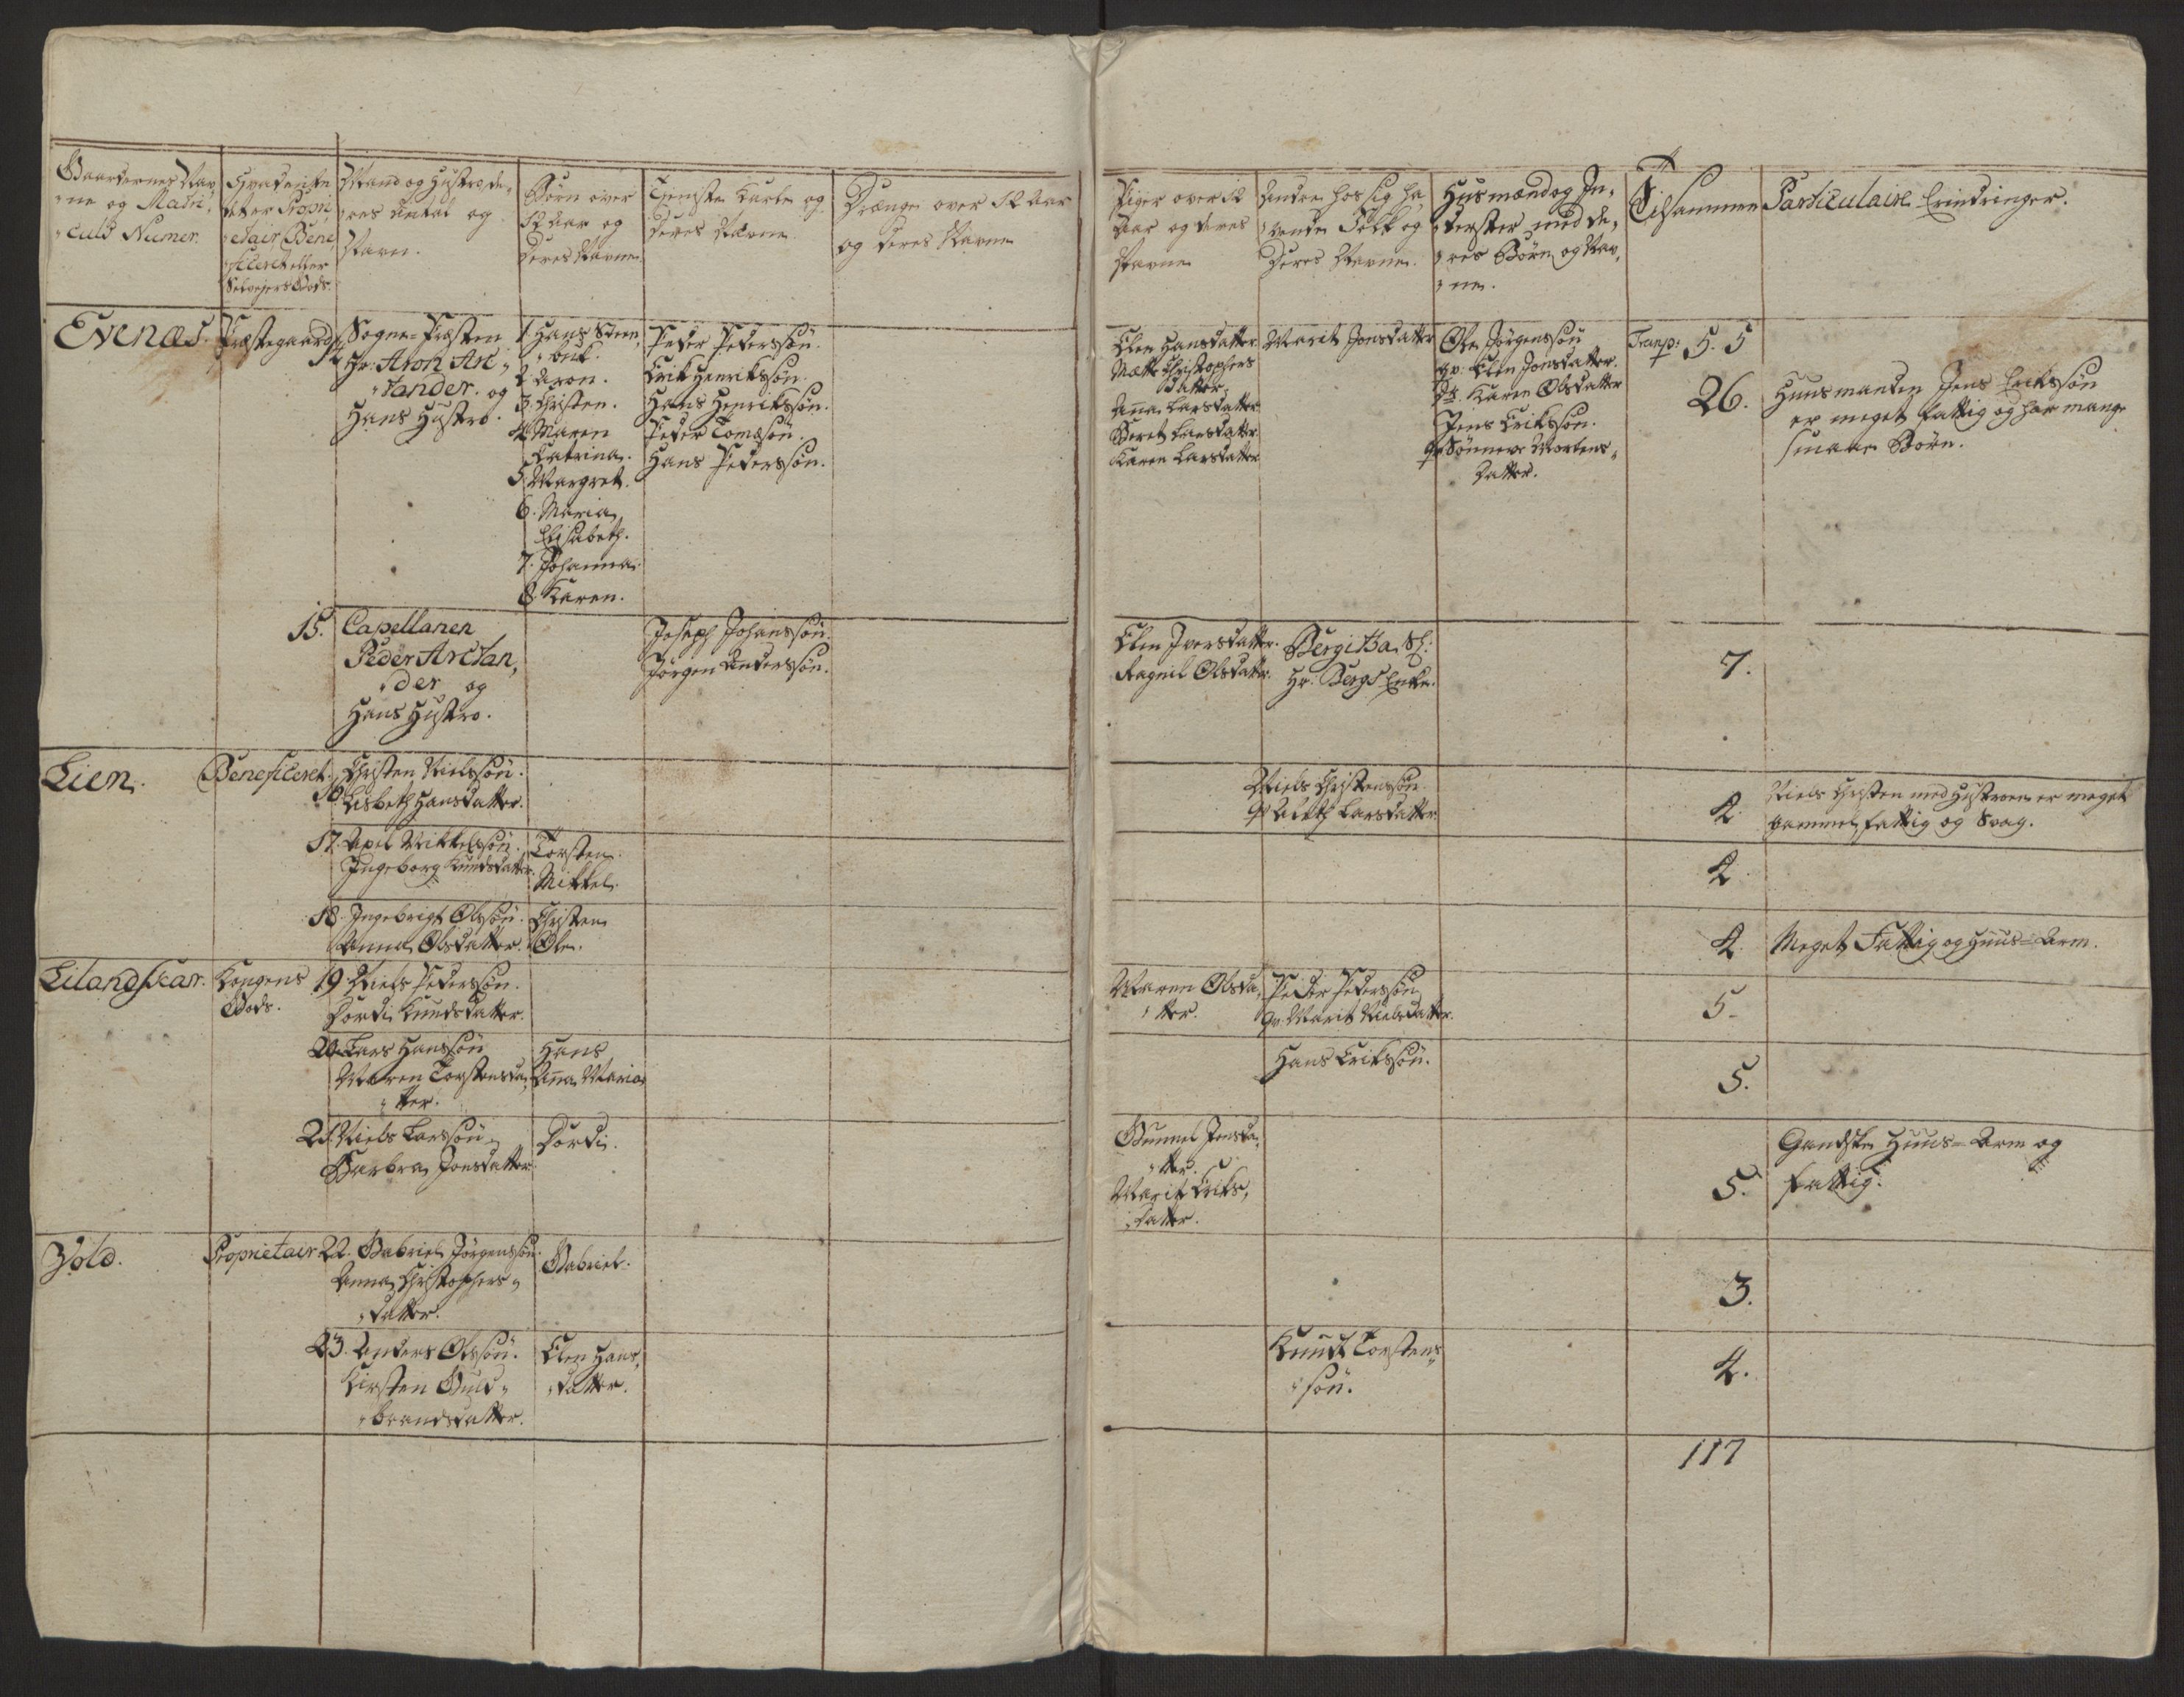 Gaardernes Nav,
"ne og Matri,
"culs Numer.
Hvad enten
det er Propri,
"etair, Bene,
"ficeret eller
Selvejers Gods.
Mand og Hustro, de,
"res Antal og
Navn.
Børn over
12 Aar og
deres Navne.
Tjeneste Karle og
deres Navne
Drænge over 12 Aar
og deres Navne
Piger over 12
Aar og deres
Navne
Andre hos sig ha,
"vende Folk og
deres Navne.
Husmænd og In,
"derster med de,
"res Børn og Nav,
"ne.
Tilsammen
Particulaire Erindringer.
Evenæs.
Præstegaard
14
Sogne-Præsten
Hr: Aron Arc"
"tander. og
Hans Hustro.
1. Hans Steen,
"buk.
2. Aron.
3. Christen.
4. Maren
Catrina.
5. Margret.
6. Maria
Elisabeth.
7. Johanna.
8. Karen.
Peder Pedersøn.
Erik Henriksøn.
Hans Henriksøn.
Peder Tomæsøn.
Hans Pedersøn.
Elen Hansdatter
Mætte Christophers
datter
Anna Larsdatter
Beret Larsdatter
Karen Larsdatter
Marit Jonsdatter
Ole Jørgenssøn
qv: Elen Jonsdatter.
Dtr. Karen Olsdatter
Jens Erikssøn.
qv Sønneve Mortens"
datter.
Transp: 55
26.
Huusmanden Jens Erikssøn
er meget fattig og har mange
smaae Børn.
15.
Capellanen
Peder Arctan,
"der og
Hans Hustro.
Joseph Johanssøn.
Jørgen Anderssøn.
Elen Iversdatter.
Ragnil Olsdatter.
Bergitha Sl:
Hr: Bergs Enke.
7.
Lien.
Beneficeret.
16
Christen Nielssøn.
Lisbeth Hansdatter.
Niels Christenssøn
qv Aleth Larsdatter
4.
Niels Christen med Hustroen er meget
gammel, fattig og Svag.
17. Axel Mikkelssøn.
Ingeborg Knudsdatter
Torsten.
Mikkel.
4
18. Ingebrigt Olssøn.
Anna Olsdatter.
Christen
Ole.
4.
Meget Fattig og Huus-Arm.
Lilandskar.
Kongens
Gods.
19. Niels Pederssøn.
Dordi Knudsdatter.
Maren Olsda,
"tter.
Peder Pederssøn
qv. Marit Nielsdatter.
5.
20. Lars Hanssøn
Maren Torstensda,
"tter.
Hans
Anna Maria
Hans Erikssøn.
5.
21. Niels Larssøn
Barbra Jonsdatter
Dordi.
Gunnel Jensda,
"tter.
Marit Eriks,
"datter.
5.
Gandske Huus-Arm og
fattig.
Vold.
Proprietair
22. Gabriel Jørgenssøn
Anna Christophers"
"datter.
Gabriel.
3.
23. Anders Olssøn.
Kirsten Guld"
"brandsdatter.
Elen Hans,
"datter.
Knud Torstens
"søn.
4.
117